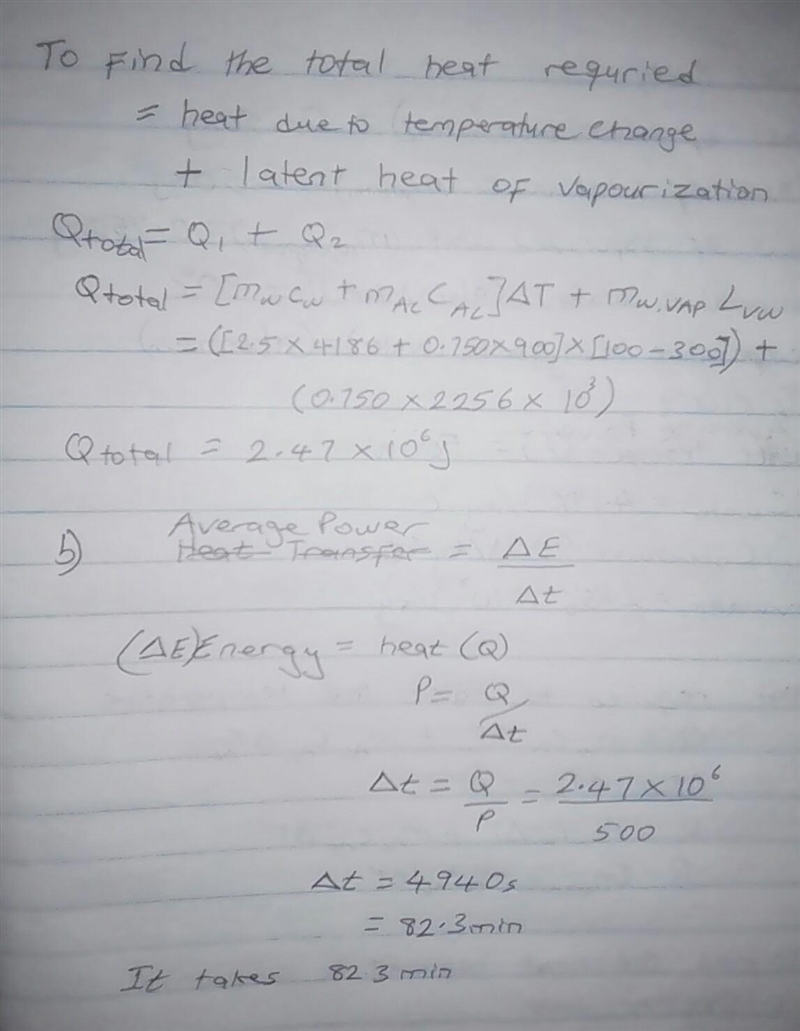 To Find the total heat requried
= heat due to temperature change
+ latent heat of vapourization
Qtotal = Q₁ + Q₂
Qtotal = [mwcw + mALCAL]ΔT + mw.VAP Lvw
= ([2.5 × 4186 + 0.750 × 900] × [100 - 300]) +
(0.750 × 2256 × 10³)
Qtotal = 2.47 × 10⁶J
b) Average Power
Heat Transfer = ΔE
Δt
(ΔE)Energy = heat (Q)
P = Q
Δt
Δt = Q/P = 2.47 × 10⁶
500
Δt = 4940s
= 82.3min
It takes 82.3 min